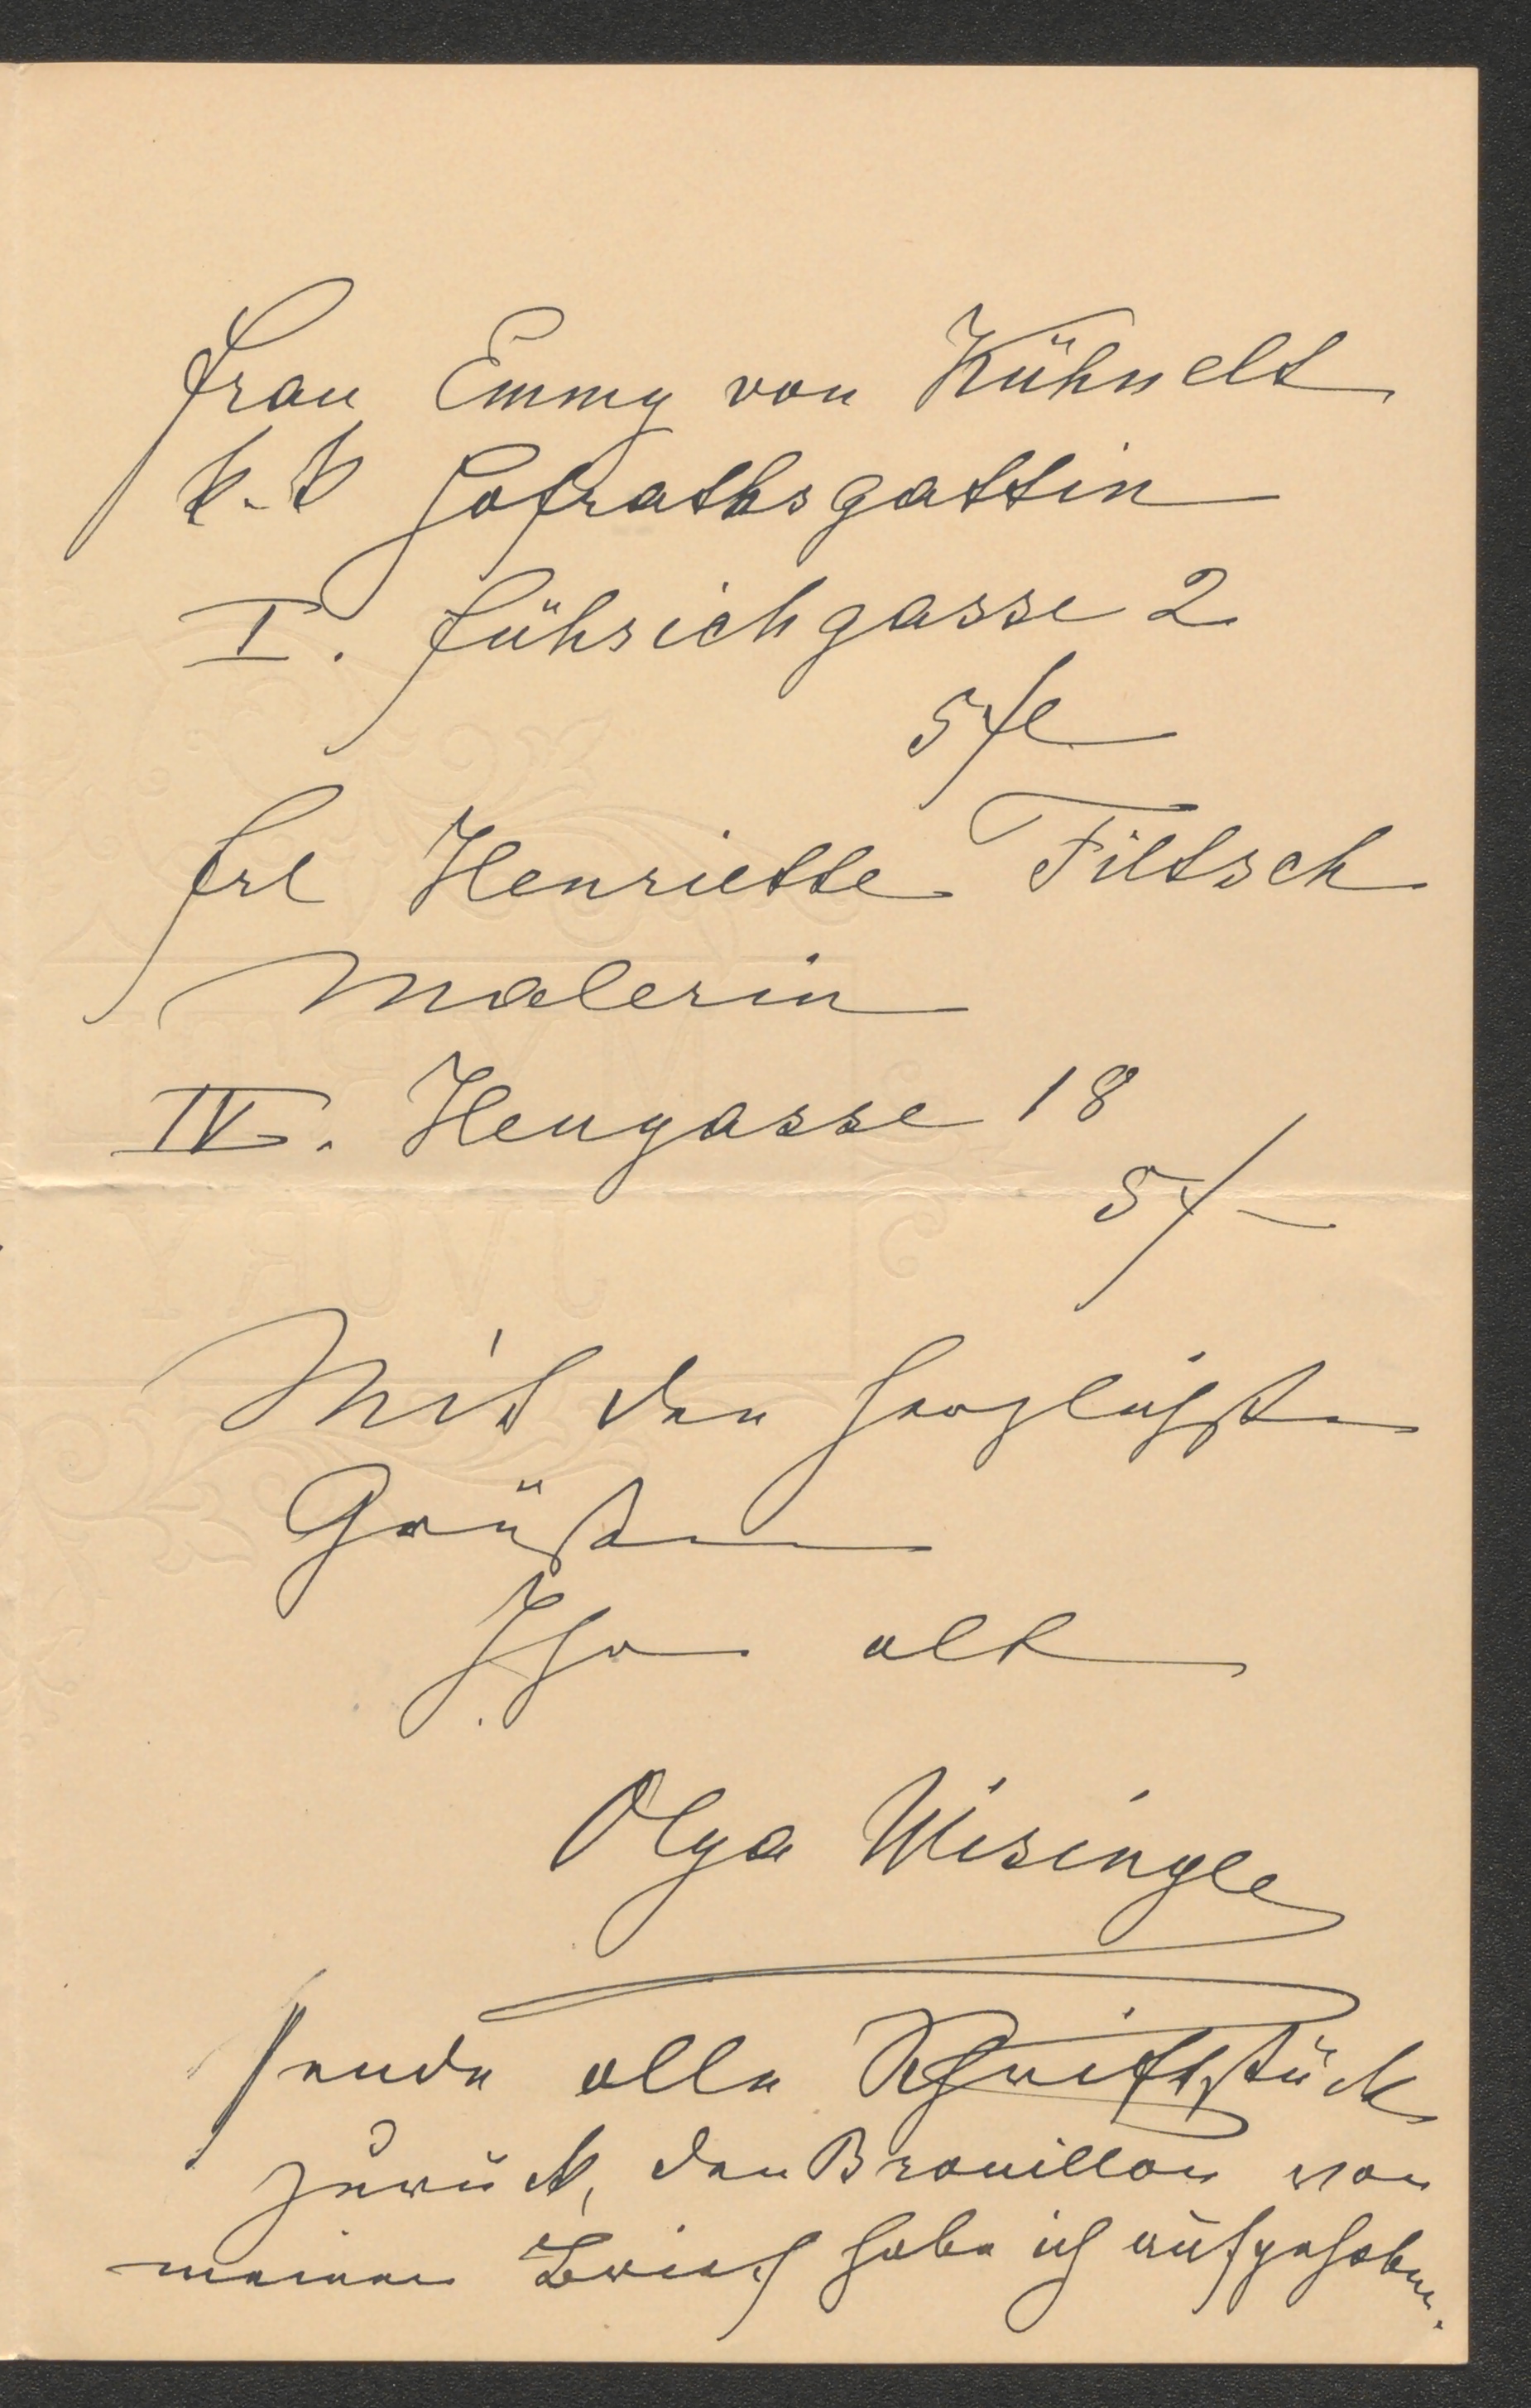 Frau Emmy von Kühnelt
k. k Hofrathsgattin
I. Führichgasse 2
5 fl
Frl Henriette Filtsch
Malerin
IV. Heugasse 18
5 f –
Mit den herzlichsten
Grüßen
Ihre alte
Olga Wisinger
sende alle Schriftstücke
zurück, den Brouillon von
meinem Brief habe ich aufgehoben.
JVORY